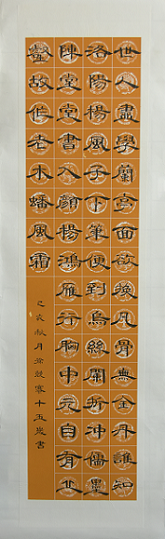 世人盡學蘭亭面欲換凡骨無金丹誰知
洛陽楊風子下筆便到烏絲闌折沖儒墨
陣堂堂書入顏楊鴻雁行胸中元自有丘
壑故作老木蟠風霜